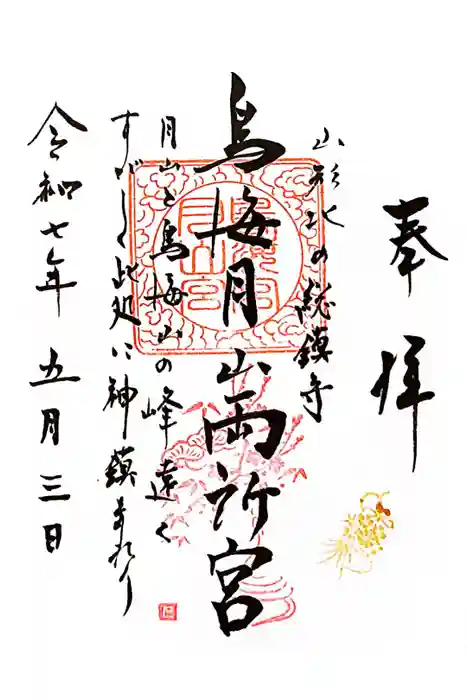 奉拝
山形北の総鎮守
鳥海月山両所宮
月山と鳥海山の峰遠く
すがしく此処に神鎮まれり
令和七年五月三日